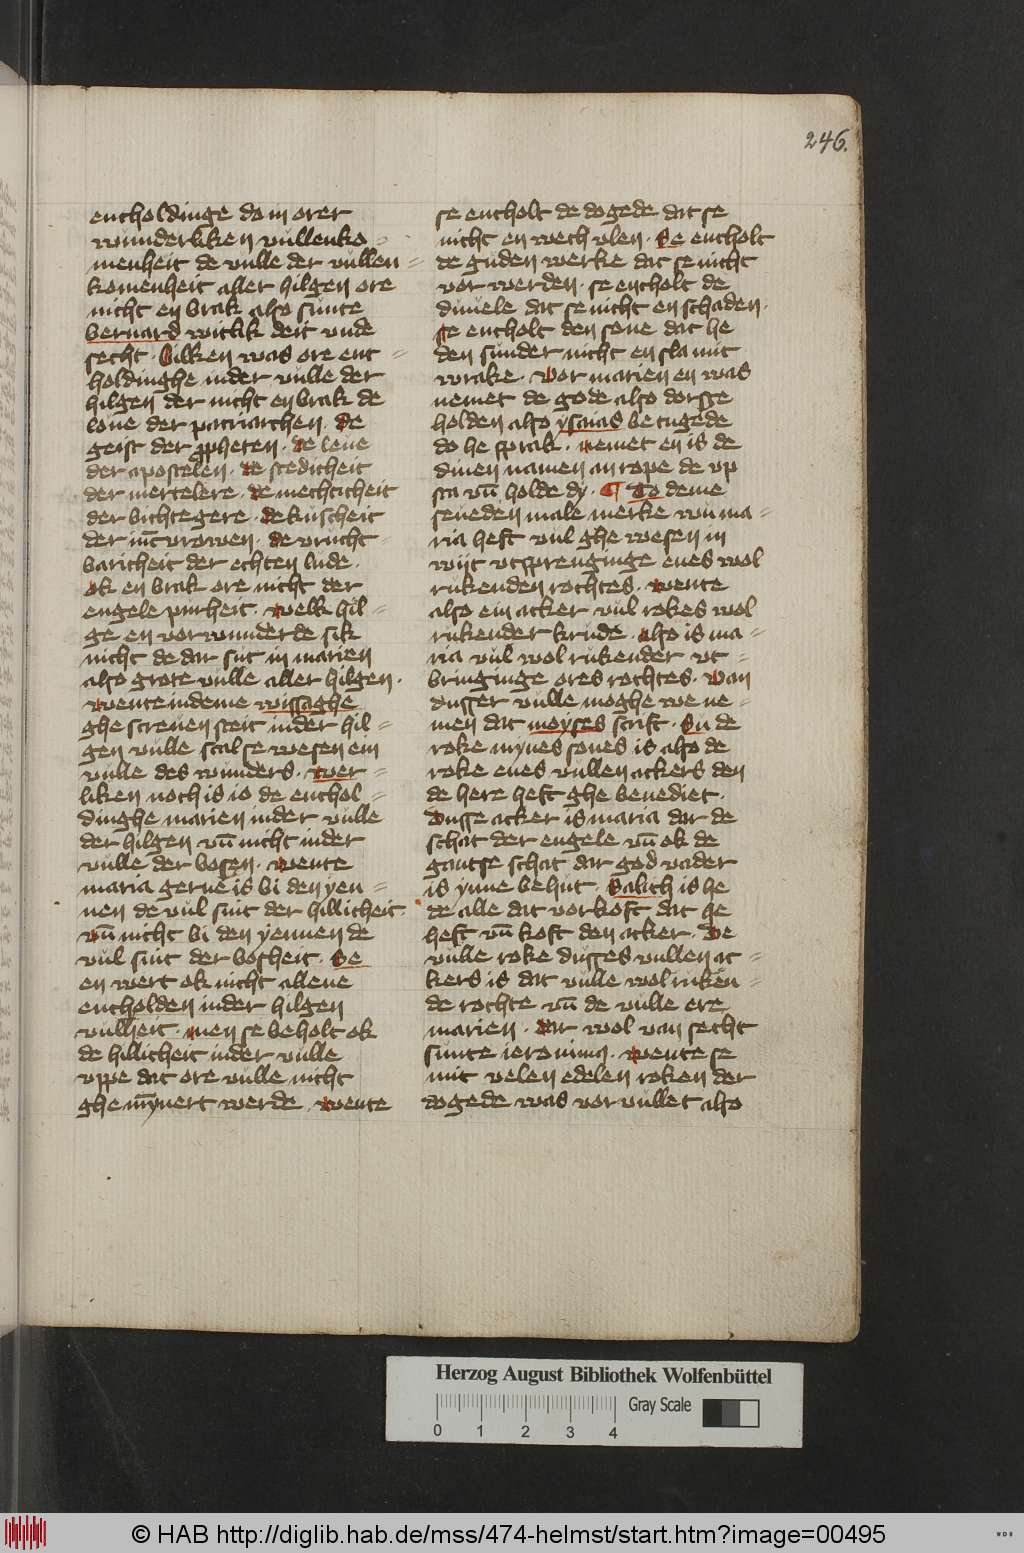 246.
entholdinge do in orer
wunderliken vullenko=
menheit de vulle der vullen=
komenheit aller hilgen ore
nicht en brak also sunte
bernard witlik deit vnde
secht. Billken was ore ent=
holdinghe inder vulle der
hilgen der nicht en brak de
loue der patriarchen. De
geist der ppheten. de leue
der apostelen. de stedicheit
der mertelere. de mechticheit
der bichtegere. de kuscheit
der iūcvrowen. de vrucht=
baricheit der echten lude.
ok en brak ore nicht der
engele purheit. welk hil=
ge en vorwunderde sik
nicht de dar sut in marien
also grote vulle aller hilgen.
wente indeme wissaghe
ghescreuen steit inder hil=
gen vulle scal se wesen ein
vulle des wunders. wer=
liken noch is io de enthol=
dinghe marien inder vulle
der hilgen vn̄ nicht inder
vulle der bosen. wente
maria gerne is bi den yen=
nen de vul sint der hillicheit.
vn̄ nicht bi den yennen de
vul sint der bosheit. Se
en wert ok nicht allene
entholden inder hilgen
vulheit. men se beholt ok
de hillicheit inder vulle
vppe dat ore vulle nicht
ghe mȳnert werde. wente
se entholt de dogede dat se
nicht en wech vlen. Se entholt
de guden werke dat se nicht
vor werden. se entholt de
duuele dat se nicht en schaden.
se entholt den sone dat he
den sunder nicht en sla mit
wrake. vor marien en was
nemet de gode also dorste
holden also ysaias betugede
do he sprak. nemet en is de
dinen namen an rope de vp
sta vn̄ holde dy. ¶ To deme
seueden male merke wu ma=
ria heft vul ghe wesen in
wijt vtsprenginge enes wol
rukenden rochtes. wente
also ein acker vul rokes wol
rukender krude. also is ma=
ria vul wol rukender vt=
bringinge ores rochtes. van
dusser vulle moghe we ne=
men dat moyses scrift. Su de
roke mynes sones is also de
roke enes vullen ackers den
de here heft ghe benediet.
Dusse acker is maria dar de
schat der engele vn̄ ok de
gantse schat dar god vader
is ynne behut. Salich is he
de alle dat vorkoft dat he
heft vn̄ koft den acker. De
vulle roke dusses vullen ac=
kers is dat vulle wol ruken=
de rochte vn̄ de vulle ere
marien. dar wol van secht
sunte ieronimꝰ. wente se
mit velen edelen roken der
dogede was vor vullet also
Herzog August Bibliothek Wolfenbüttel
0 1 2 3 4
Gray Scale
© HAB http://diglib.hab.de/mss/474-helmst/start.htm?image=00495